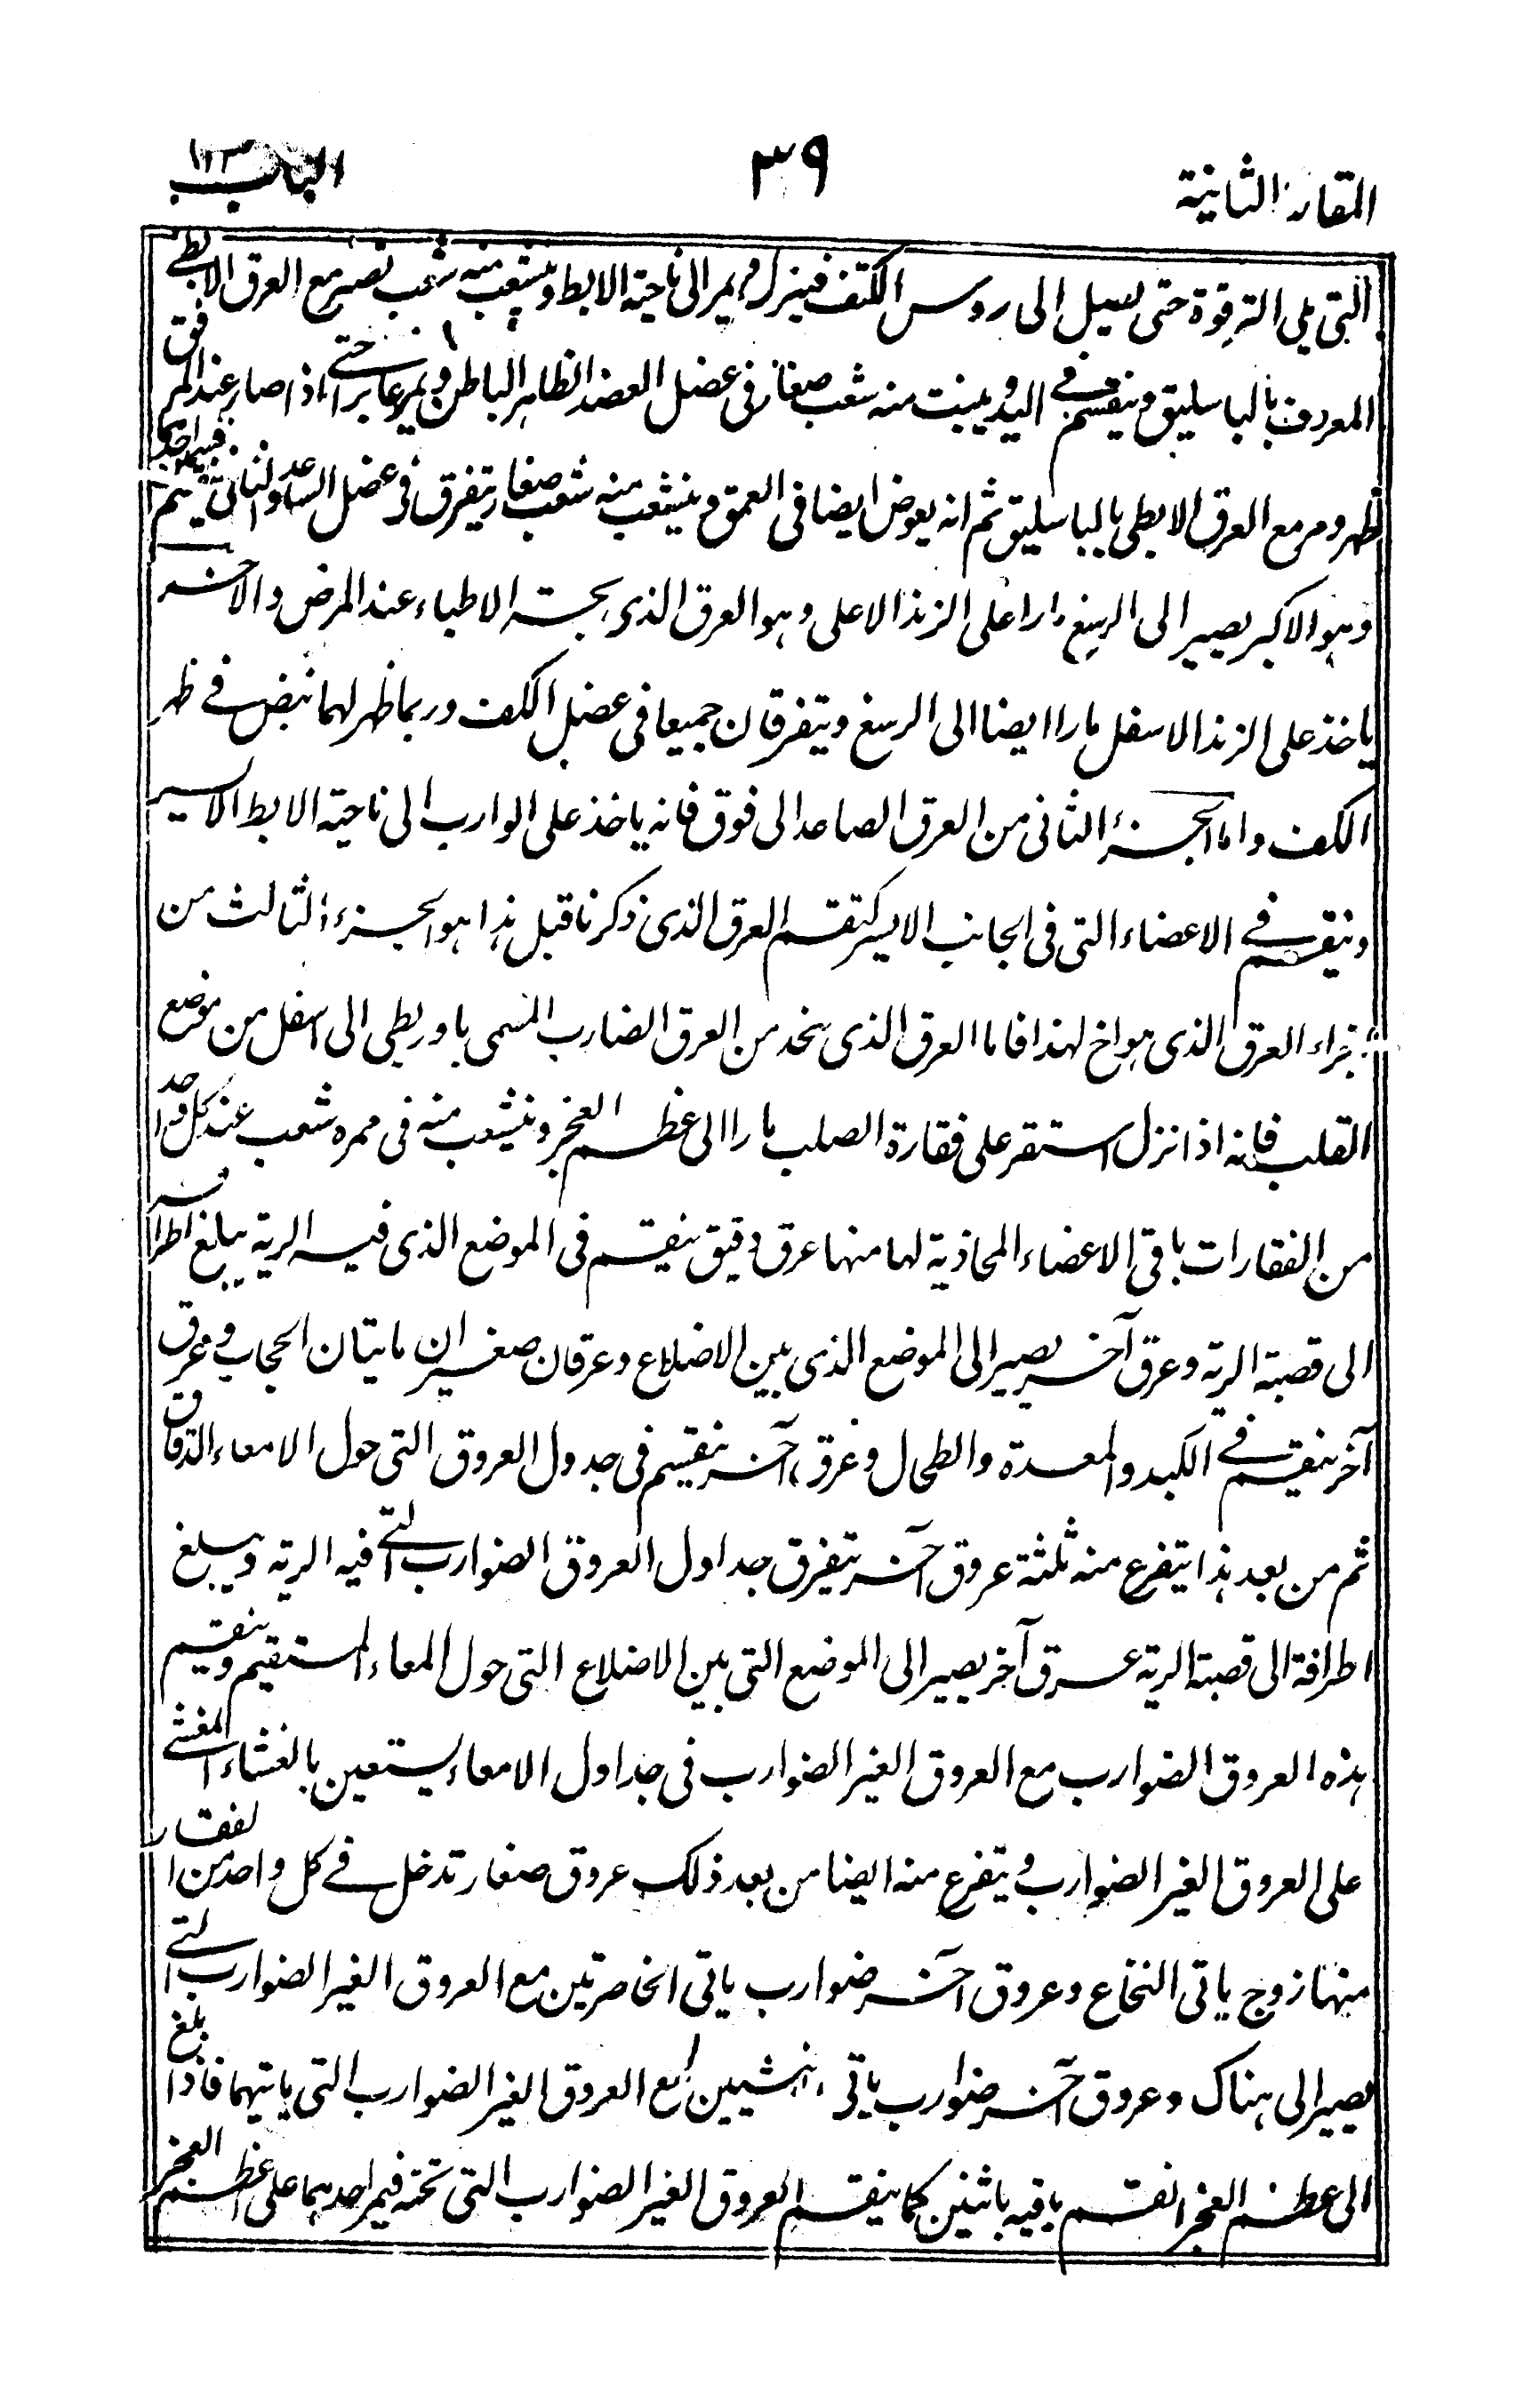 المقالة الثانية
٣٩
الباب ١٣
التي يلي الترقوة حتى يسيل الى روس الكتف فينزل ويمر الى ناحية الابط وينشعب منه شعب تصير مع العرق الابطي
المعروف بالباسليق وينقسم في اليد وينبت منه شعب صغار في عضل العضد الظاهر والباطن ويمر عابرا حتى اذا صار عند المرفق
ظهر ومر مع العرق الابطي بالباسليق ثم انه يعوض ايضا في العمق وينشعب منه شعب صغار يتفرق في عضل الساعد والثاني ثم ينقسم فيمر احدهما
وهو الاكبر يصير الى الرسغ مارا على الزند الاعلى وهو العرق الذي يجسه الاطباء عند المرض والاخر
ياخذ على الزند الاسفل مارا ايضا الى الرسغ ويتفرقان جميعا في عضل الكف وربما ظهر لهما نبض في ظهر
الكف واما الجزء الثاني من العرق الصاعد الى فوق فانه ياخذ على الوارب الى ناحية الابط الايسر
وينقسم في الاعضاء التي في الجانب الايسر كتقسم العرق الذي ذكرنا قبل هذا هو الجزء الثالث من
اجزاء العرق الذي هو اخ لهذا فاما العرق الذي ينحد من العرق الضارب المسمى باوريطي الى اسفل من موضع
القلب فانه اذا نزل استقر على فقارة الصلب مارا الى عظم العجز وينشعب منه في ممره شعب عند كل واحد
من الفقارات باقي الاعضاء المحاذية لها منها عرق دقيق ينقسم في الموضع الذي فيه الرية يبلغ اطرافه
الى قصبة الرية وعرق آخر يصير الى الموضع الذي بين الاضلاع وعرقان صغيران ماتيان الحجاب وعرق
آخر ينقسم في الكبد والمعدة والطحال وعرق آخر ينقسم في جدول العروق التي حول الامعاء الدقاق
ثم من بعد هذا يتفرع منه ثلثة عروق آخر يتفرق جداول العروق الضوارب التي فيه الرية ويبلغ
اطرافة الى قصبة الرية عرق آخر يصير الى الموضع التي بين الاضلاع التي حول المعاء المستقيم وينقسم
هذه العروق الضوارب مع العروق الغير الضوارب في جداول الامعاء يستعين بالغشاء المغشي
على العروق الغير الضوارب ويتفرع منه ايضا من بعد ذلك عروق صغار تدخل في كل واحد من الفقار
منها زوج ياتي النخاع وعروق آخر ضوارب ياتي الخاصرتين مع العروق الغير الضوارب التي
يصير الى هناك وعروق آخر ضوارب ياتي الانثيين مع العروق الغير الضوارب التي ياتيهما فاذا بلغ
الى عظم العجز انقسم باقيه باثنين كما ينقسم العروق الغير الضوارب التي تحته فيمر احدهما على عظم العجز